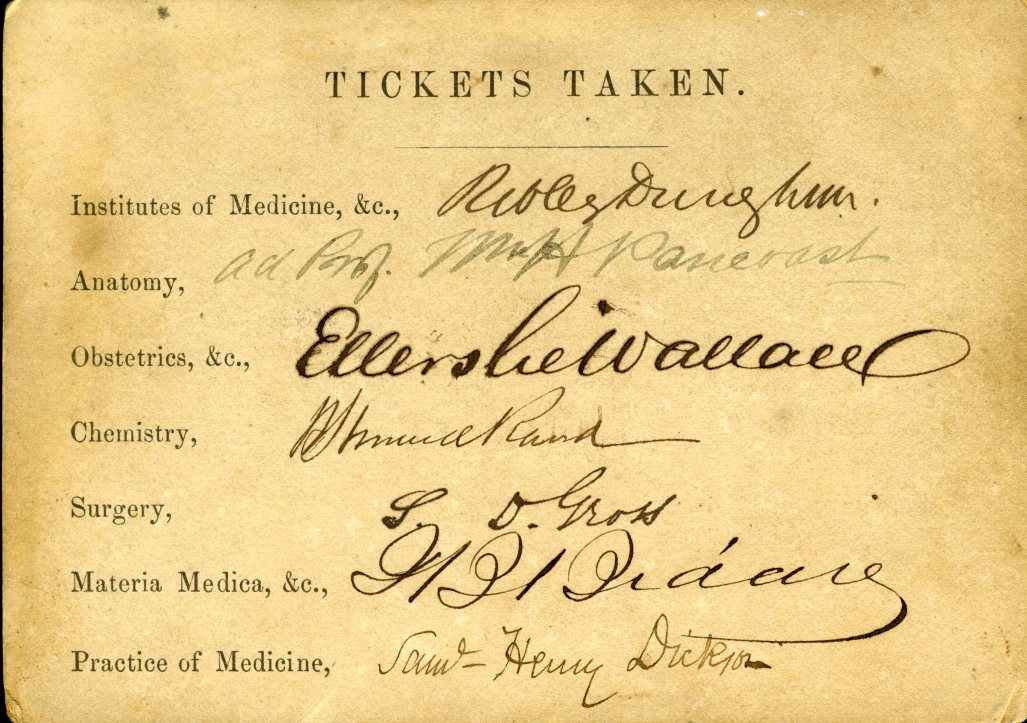 TICKETS TAKEN.
Institutes of Medicine, &c., Robley Dunglison.
Anatomy, ad Prof. Wm H Pancoast
Obstetrics, &c., Ellerslie Wallace
Chemistry, B Howard Rand
Surgery, S. D. Gross
Materia Medica, &c.,
Practice of Medicine, Saml Henry Dickson